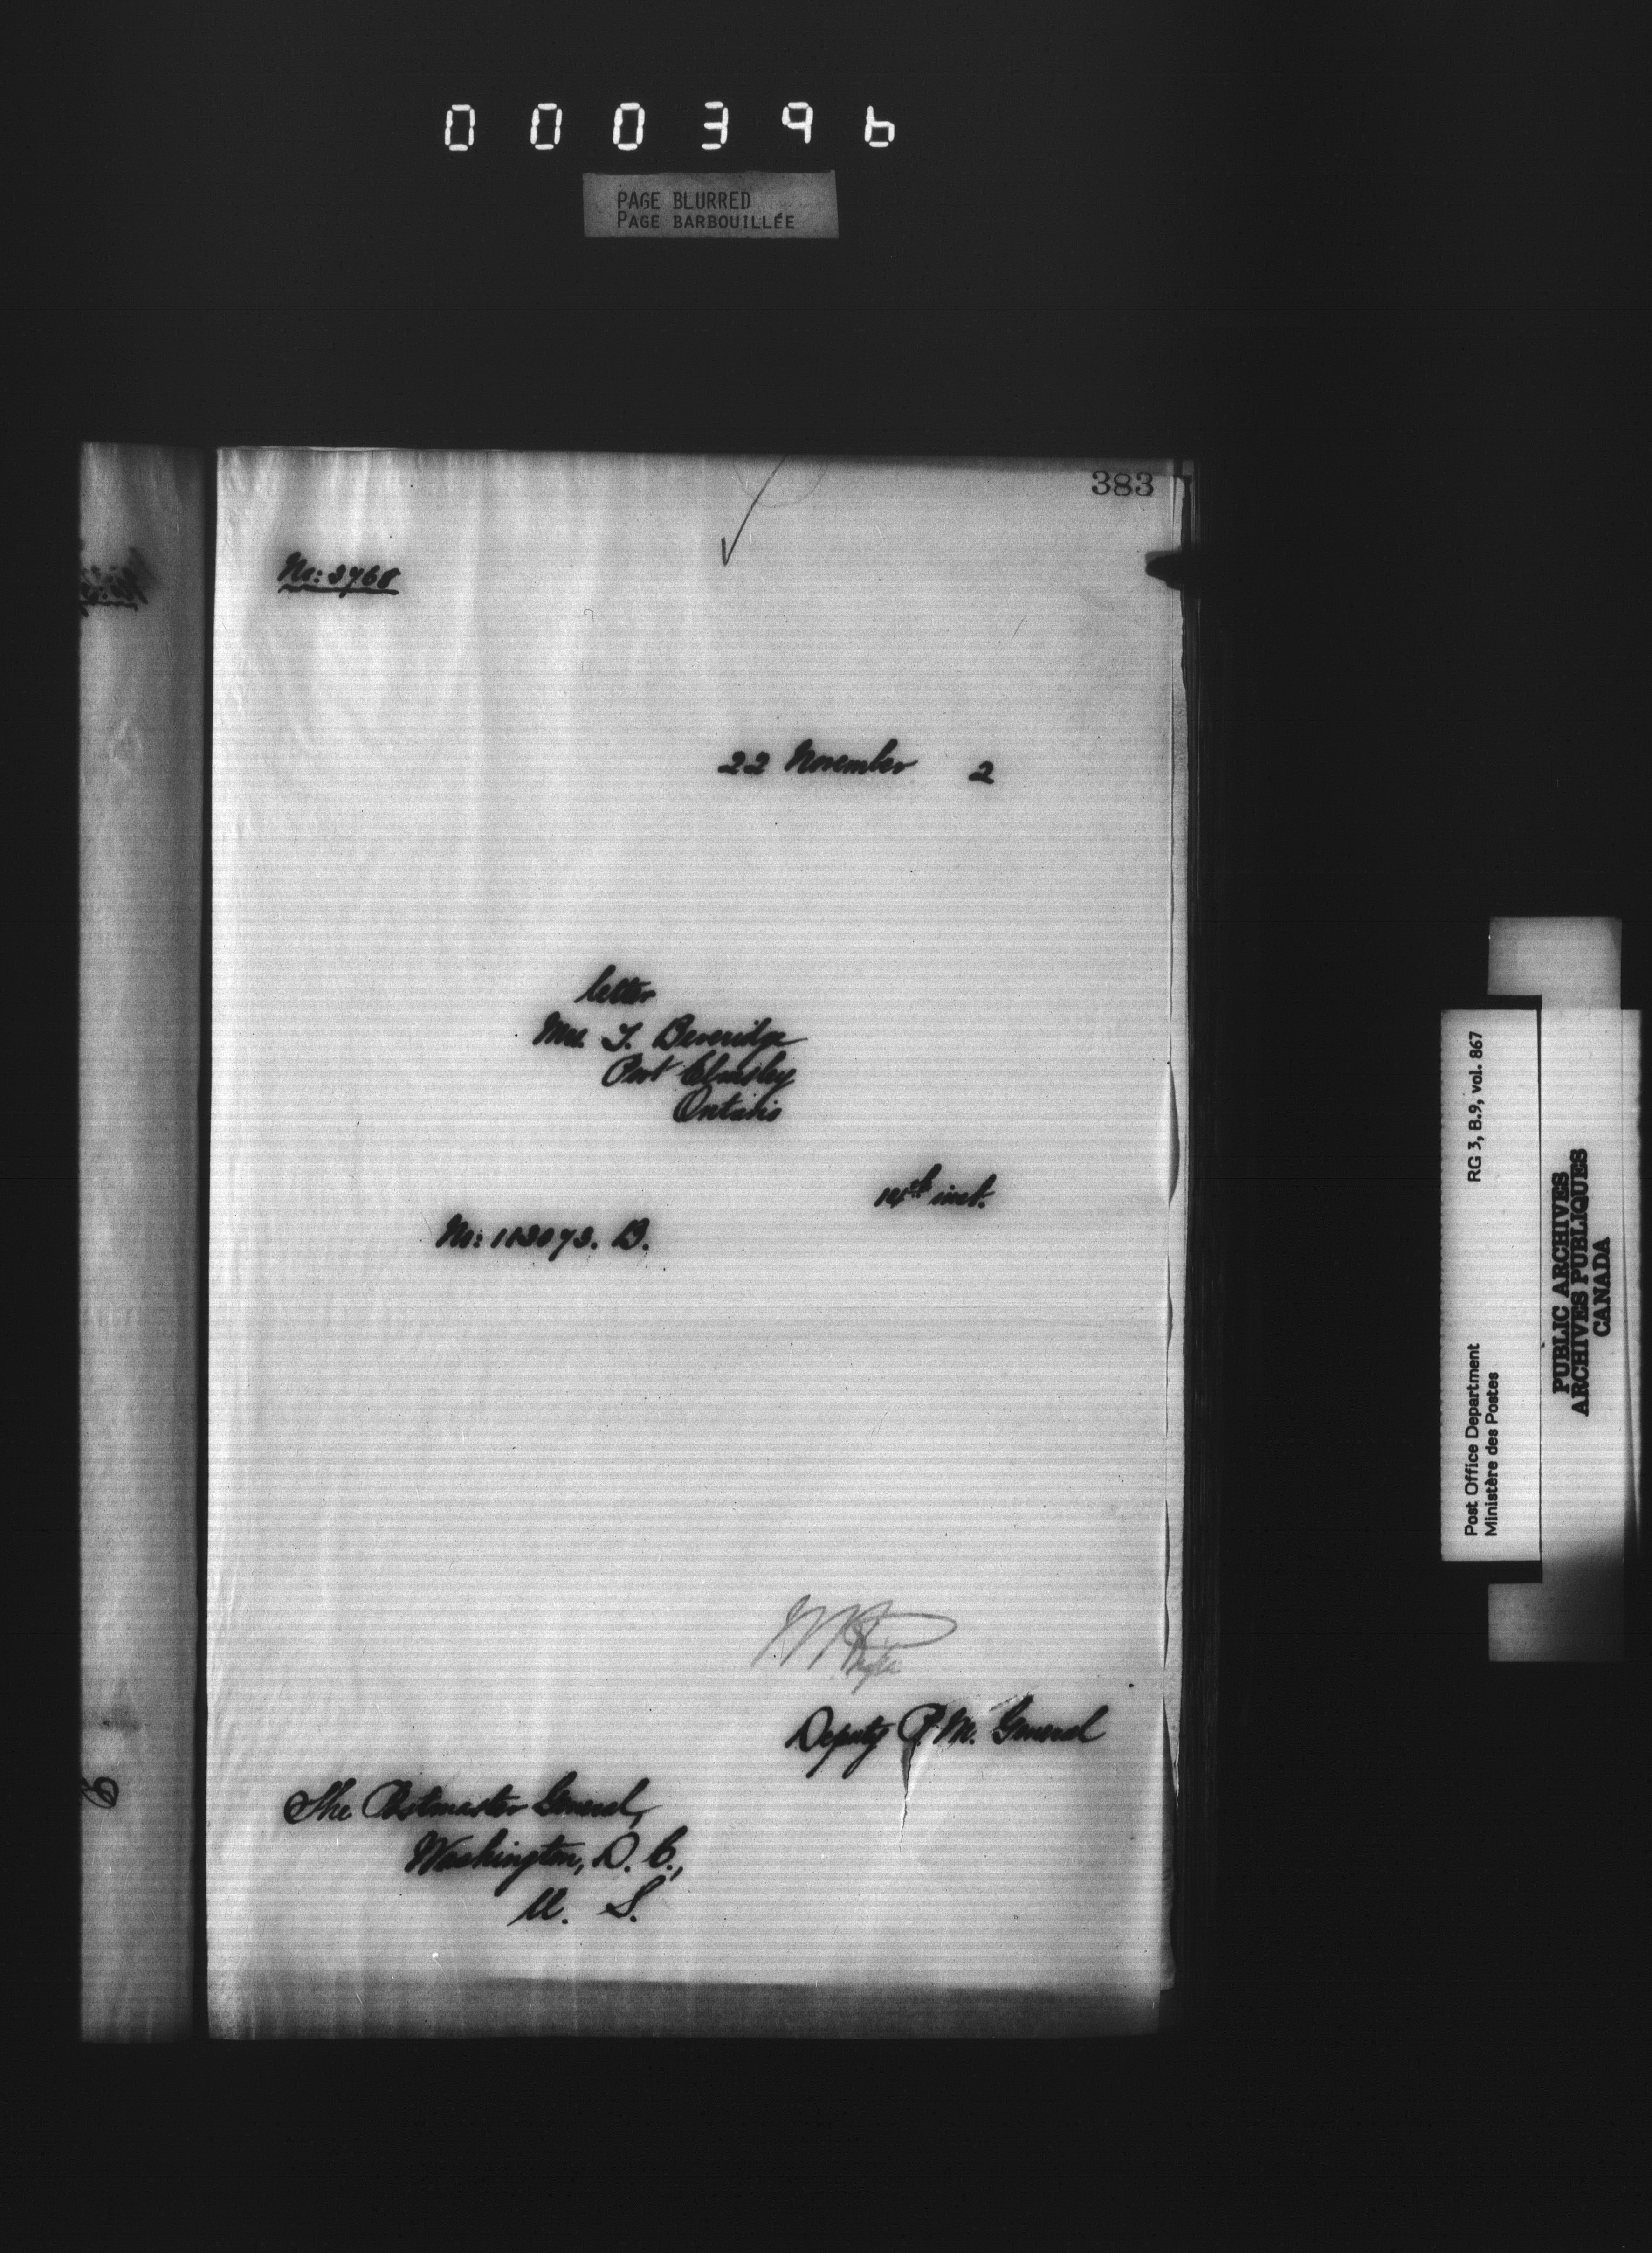 000396
PAGE BLURRED
PAGE BARBOUILLÉE
383
No: 3768
22 November 2
letter
Mrs. T. Beveridge
Port Elmsley
Ontario
14th inst.
No: 113073. B.
Deputy P. M. General
The Postmaster General,
Washington, D. C.,
U. S.
Post Office Department RG 3, B.9, vol. 867
Ministère des Postes
PUBLIC ARCHIVES
ARCHIVES PUBLIQUES
CANADA